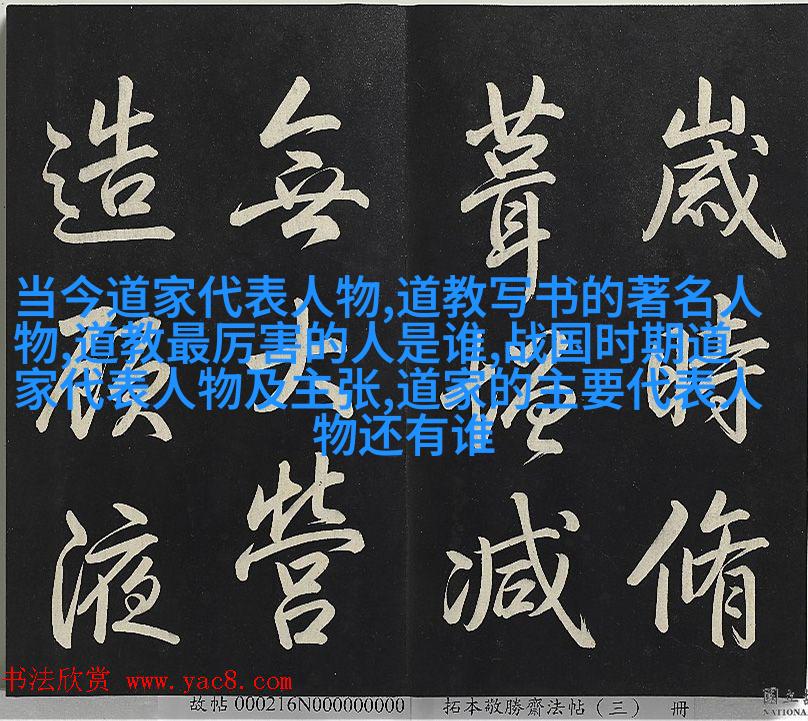 歲時脩
葺增減
無大營
造液
当今道家代表人物,道教写书的著名人
物,道教最厉害的人是谁,战国时期道
家代表人物及主张,道家的主要代表人
物还有谁
书法欣赏 www.yac8.com
故帖000216N000000000 拓本敬勝齋法帖（三） 冊
國立
NATIONA